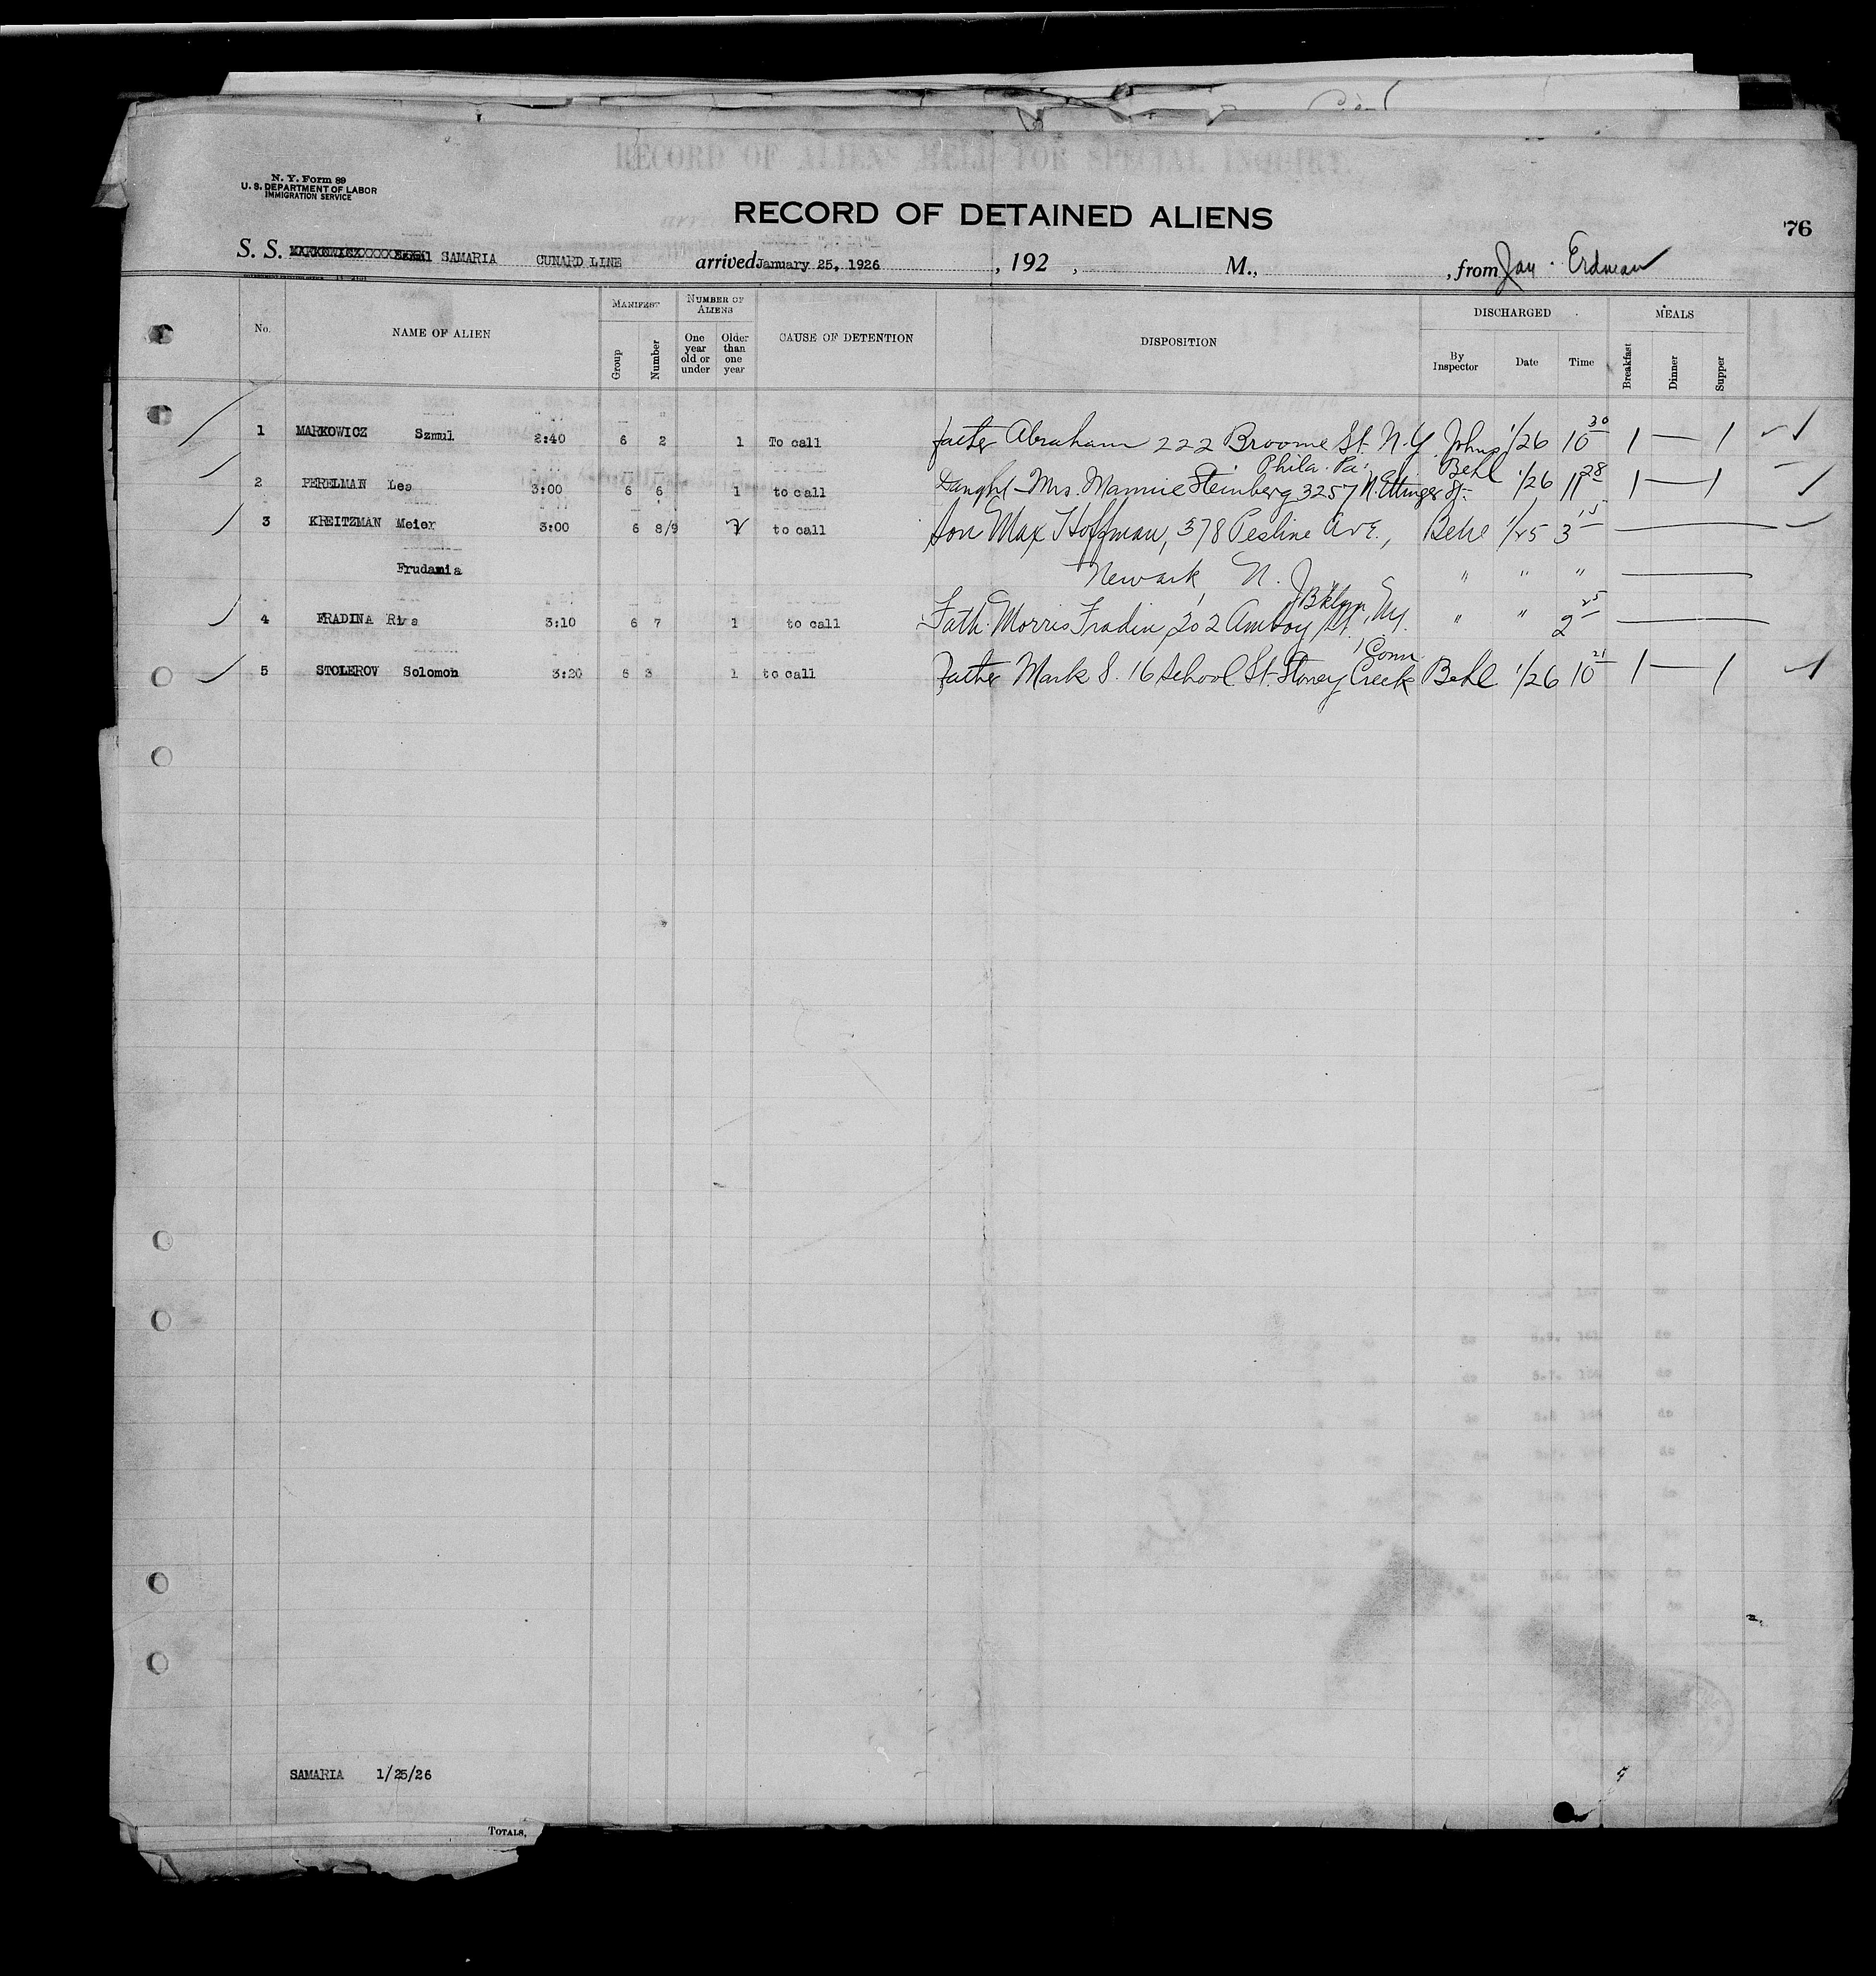 N. Y. Form 89
U. S. DEPARTMENT OF LABOR
IMMIGRATION SERVICE
RECORD OF ALIENS HELD FOR SPECIAL INQUIRY
RECORD OF DETAINED ALIENS
76
S. S. SAMARIA CUNARD LINE arrived January 25, 1926 , 192 , M., , from Jan. Erdman
No. NAME OF ALIEN MANIFEST Group Number NUMBER OF ALIENS One year old or under Older than one year CAUSE OF DETENTION DISPOSITION DISCHARGED By Inspector Date Time MEALS Breakfast Dinner Supper
1 MARKOWICZ Szmul 2:40 6 2 1 To call father Abraham 222 Broome St. N.Y. Johns 1/26 10 30 1 — 1
Phila. Pa.
2 PERELMAN Lea 3:00 6 6 1 to call Daught - Mrs. Mannie Steinberg 3257 N. Ettinger St. Behl 1/26 11 28 1 — 1
3 KREITZMAN Meier 3:00 6 8/9 2 to call Son Max Hoffman, 378 Peshine Ave., Behl 1/25 3 15
Frudamia Newark, N. J. " " "
Bklyn, N.Y.
4 FRADINA Riva 3:10 6 7 1 to call Fath. Morris Fradin, 202 Amboy St. " " 2 25
Conn.
5 STOLEROV Solomon 3:20 6 3 1 to call Father Mark S. 16 School St. Stoney Creek Behl 1/26 10 21 1 — 1
SAMARIA 1/25/26
TOTALS,